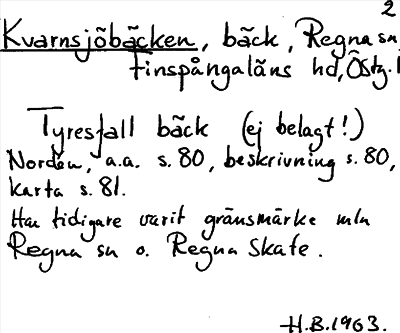 2
Kvarnsjöbäcken, bäck, Regna sn
Finspångaläns hd, Östg.l
Tyresfall bäck (ej belagt!)
Nordén, a.a. s. 80, beskrivning s. 80,
karta s. 81.
Har tidigare varit gränsmärke mln
Regna sn o. Regna Skate.
H.B. 1963.